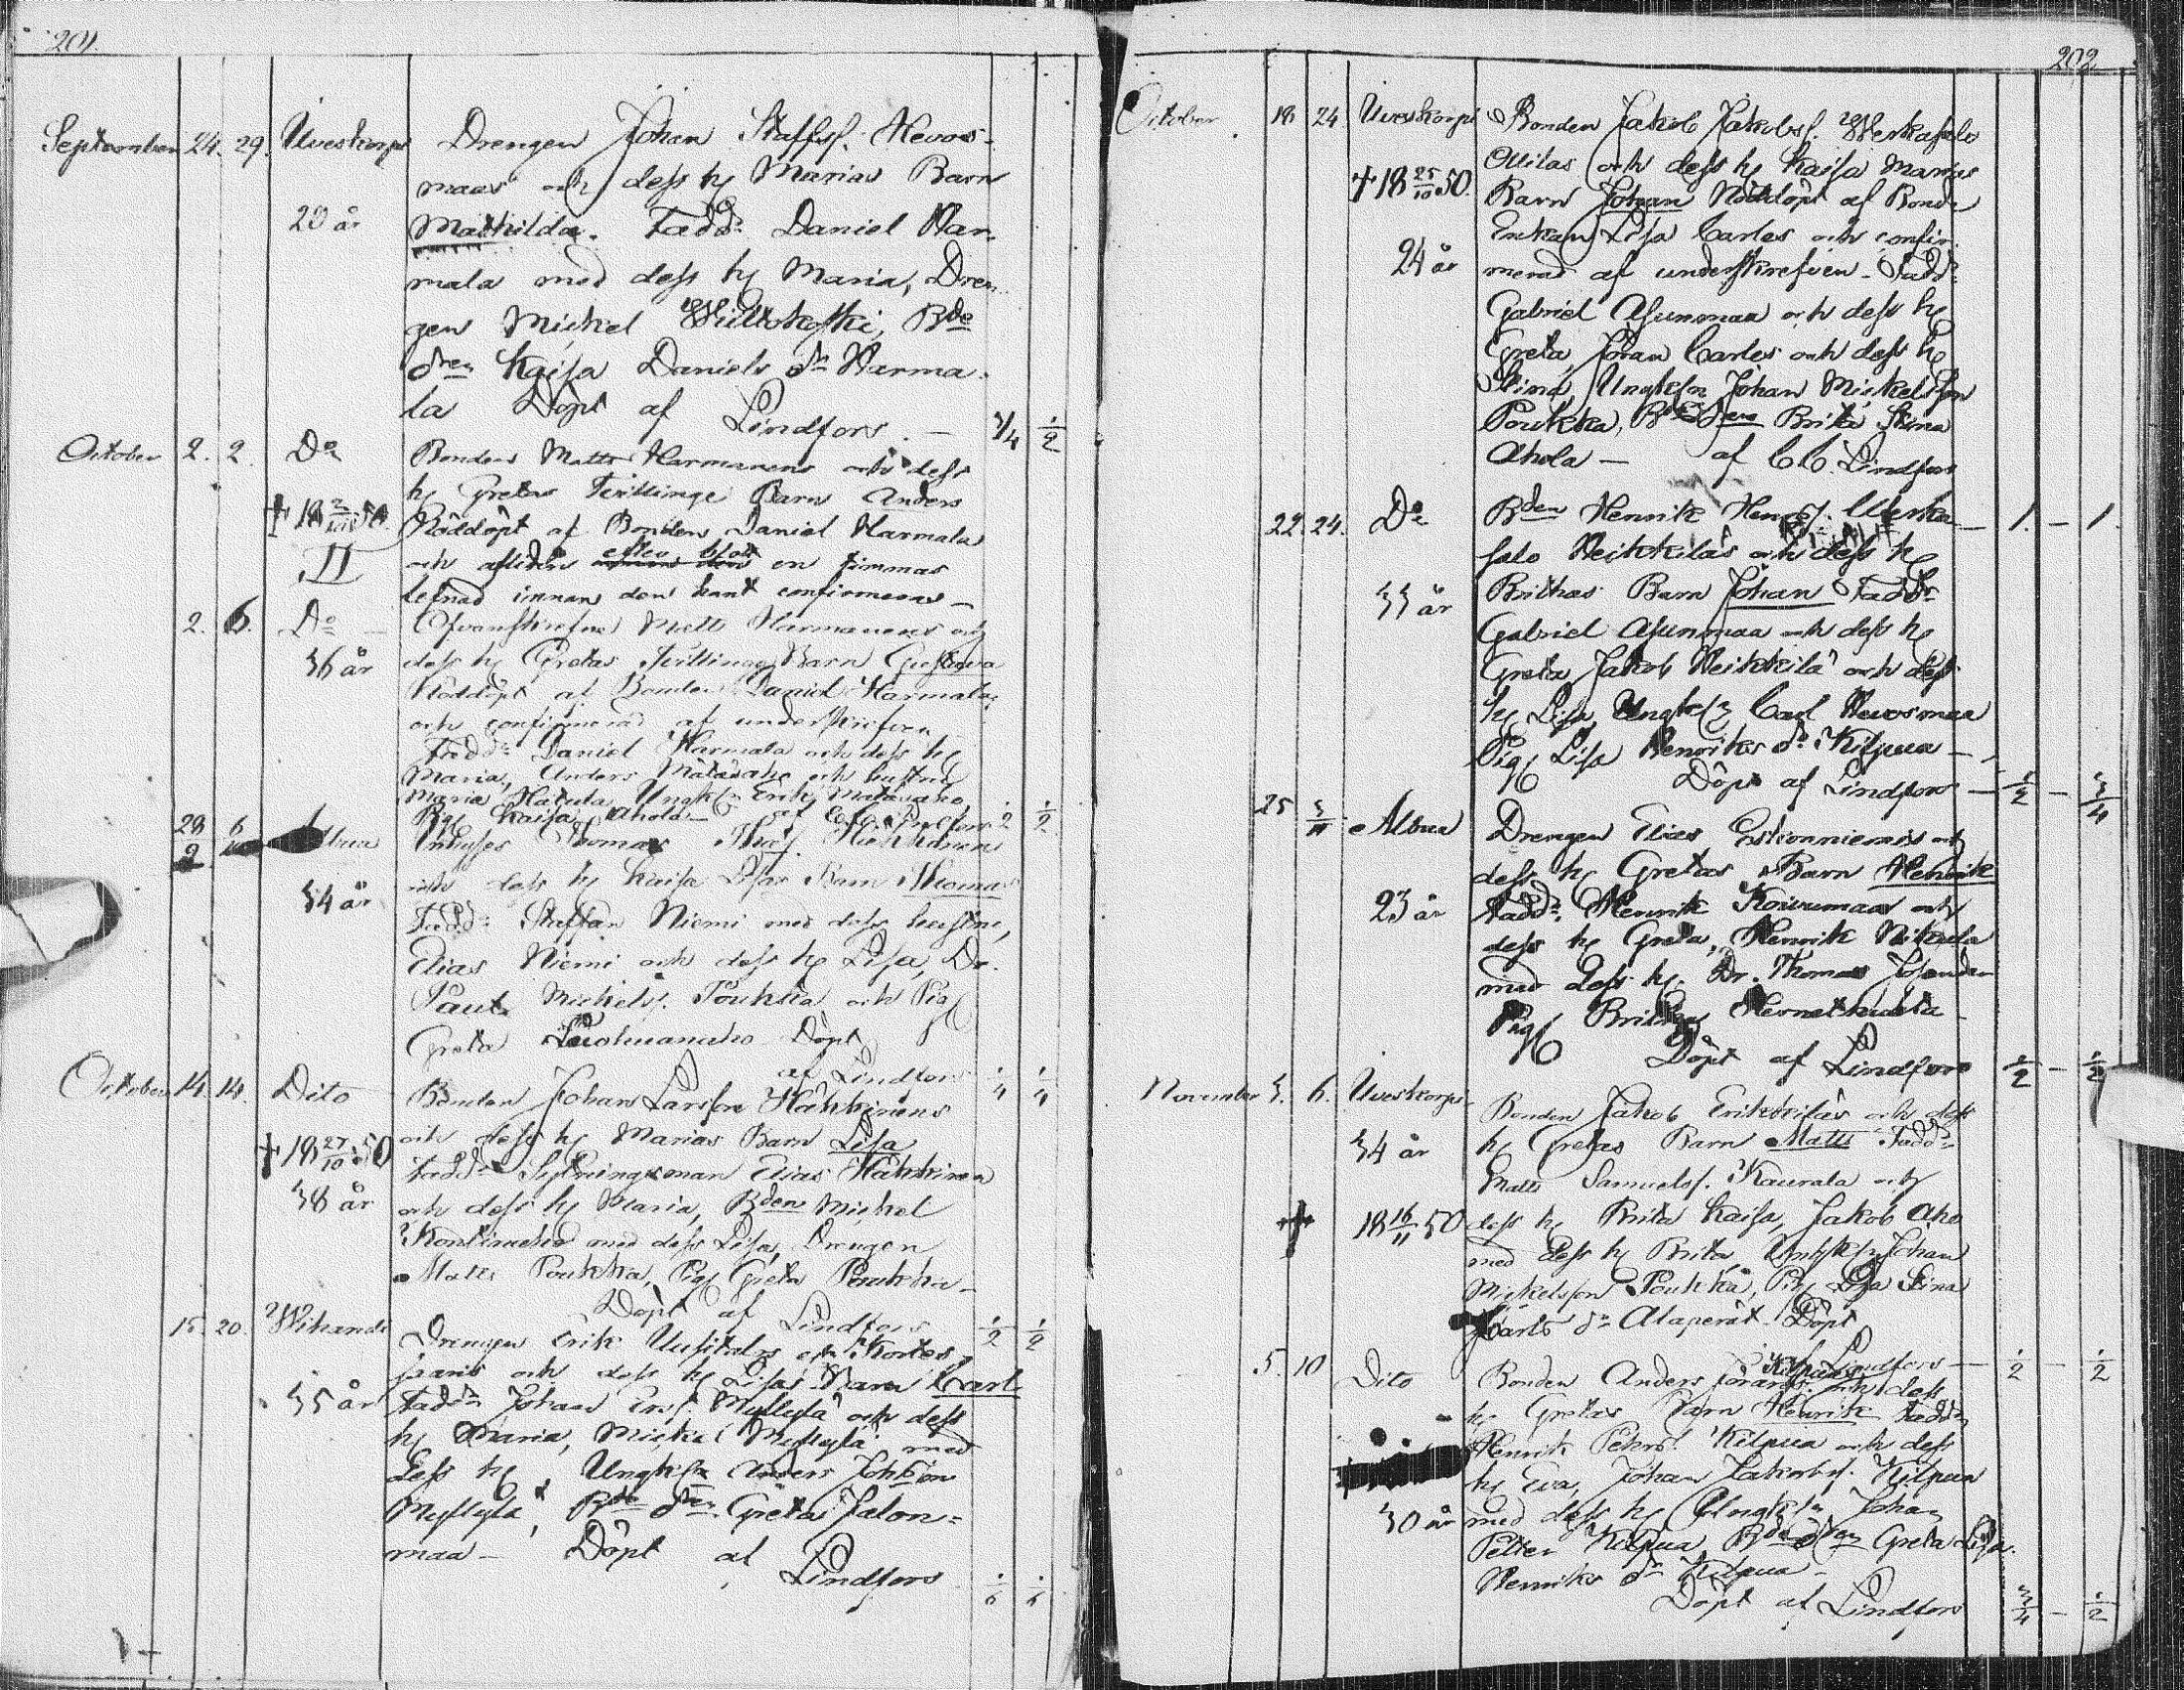 201.
September 24. 29. Uveskorpi Drengen Johan Staffsf. Hevos-
maas och dess h Marias Barn
20 år Mathilda. Fadd: Daniel Har-
mala med dess h Maria, Dren-
gen Mickel Bde
dren Kaisa Daniels dr Harma-
la Döpt af Lindfors. — 3/4 1/2
October 2. 2. Do Bonden Matts Harmanens och dess
h Gretas Tvillinge Barn Anders
+ 18 2/10 50. Nöddöpt af Bonden Daniel Harmala
II och afliden efter blott en timmas
lefnad innan den hant confirmeras —
2. 6. Do Ofvanskrefne Matts Harmanens och
36 år dess h Gretas Tvillinge Barn Gustava
Nöddöpt af Bonden Daniel Harmala
och confirmerad af underskrefven
Fadd: Daniel Harmala och dess h
Maria, Anders Matoaho och hustru
Maria Ungk: Erik Matoaho
Pig Kaisa Ahola — af C. C. Lindfors 1/2 1/2
28/9 6 Inhyses Thomas Thsf. Hickkanen
34 år och dess h Kaisa Lisas Barn Thomas
Fadd: Staffan Niemi med dess hustru,
Elias Niemi och dess h Lisa, Dr.
Paul Mickelsf. Poukka och Pig
Greta Döpt
af Lindfors 1/4 1/4
October 14. 14. Dito Bonden Johan Larsson Häkkinens
och dess h Marias Barn Lisa
+ 18 27/10 50 Fadd: Sytningsman Elias Häkkinen
38 år och dess h Maria, Bden Mickel
med dess Lisa, Drengen
Matts Poukka, Pig Greta Poukka —
Döpt af Lindfors 1/2 1/2
15. 20. Wihandi Drengen Erik Uusitalos
och dess h Lisas Barn Carl
35 år Fadd: Johan Ersf. Myllylä och dess
h Maria, Mickel Myllylä med
dess h, Ungk: Anders Johsson
Myllylä, Bde drn Greta Jalon-
maa — Döpt af
Lindfors
202
October 18 24 Uveskorpi Bonden Jakob Jakobsf. Werkasalo
Ollilas och dess h Kaisa Marias
+ 18 25/10 50. Barn Johan Nöddöpt af Bonde
Enkan Lisa Carles och confir-
24 år merad af underskrefven — Fadd:
Gabriel Asunmaa och dess h
Greta, Jöran Carles och dess h
Stina, Ungkln Johan Mickelsson
Poukka, Bde dren Brita Stina
Ahola — af C. C. Lindfors
22. 24. Do Bden Henrik Henrsf. Werka- 1. — 1.
salo Heikkiläs och dess h
33 år Brithas Barn Johan Fadd:
Gabriel Asunmaa och dess h
Greta, Jakob Heikkilä och dess
h Lisa, Ungk Carl Hevosmaa
Pig Lisa Henriks dr Kilpua —
Döpt af Lindfors — 1/2 — 3/4
25 3/11 Albua Drengen Elias Eskonniemis och
dess h Gretas Barn Henrik
23 år Fadd: Henrik Koivumaa och
dess h Greta, Henrik Nikula
med dess h, Dr. Thomas
Pig Brita
Döpt af Lindfors 1/2 — 1/2
November 3. 6. Uveskorpi Bonden Jakob Erikkiläs och dess
34 år h Gretas Barn Matts Fadd:
Matts Samuelsf. Kaurala och
+ 18 16/11 50 dess h Brita Kaisa, Jakob Aho
med dess h Brita, Ungkln Johan
Mickelsson Poukka, Pig Lisa Stina
Carls dr Alaperät Döpt
af Lindfors — 1/2 — 1/2
5. 10 Dito Bonden Anders Göransf. Kilpuas och dess
h Gretas Barn Henrik Fadd:
Henrik Petersf. Kilpua och dess
h Eva, Johan Jakobsf. Kilpua
30 år med dess h Ungkln Johan
Petter Kilpua, Bde dren Greta Lisa
Henriks dr Kilpua —
Döpt af Lindfors 3/4 — 1/2